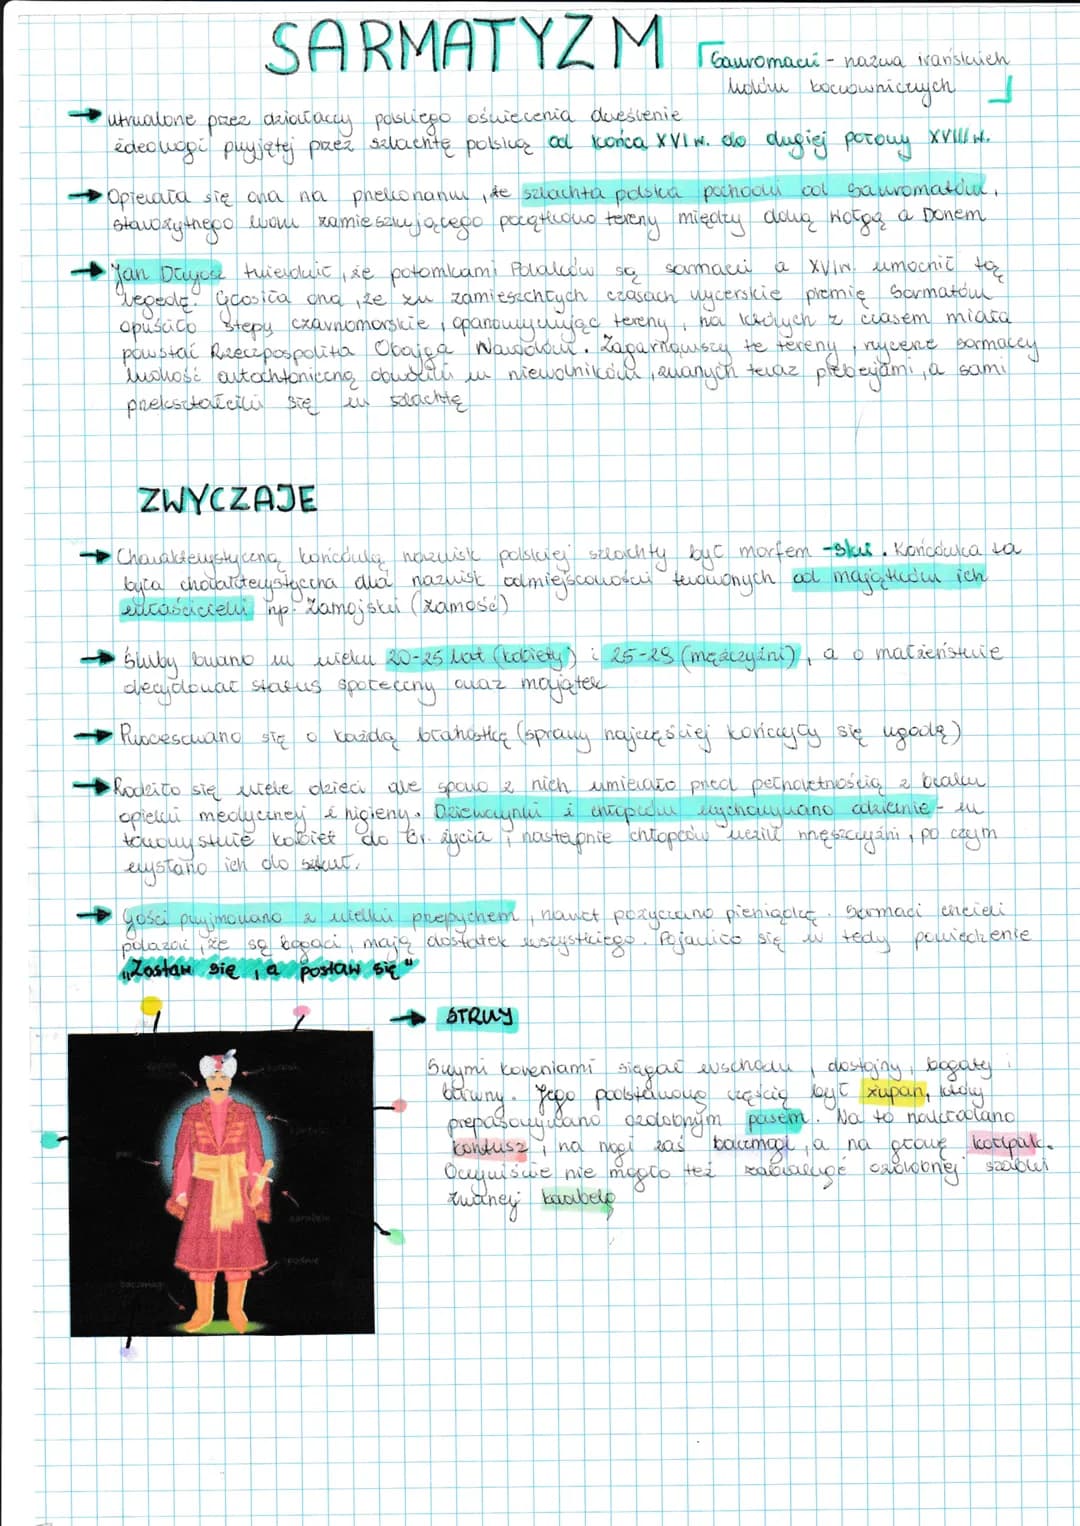 SARMATYZM
Sauromaci - nazwa irańskich
ludów koczowniczych
utrwalone przez działaczy polskiego oświecenia określenie
ideologi przyjętej przez szlachtę polską od końca XVI w. do drugiej połowy XVIII w.
Opierała się ona na przekonaniu, że szlachta polska pochodzi od Sauromatów,
starożytnego ludu zamieszkującego początkowo tereny między dolną Wołgą a Donem
Jan Długosz twierdził, że potomkami Polaków są sarmaci a XVIw. umocnił tą
legedę. Głosiła ona, że w zamieszchłych czasach rycerskie plemię Sarmatów
opuściło stepy czarnomorskie, opanowywując tereny, na których z czasem miała
powstać Rzeczpospolita Obojga Narodów. Zagarnąwszy te tereny, rycerze sarmaccy
ludność autochtoniczną obrócili w niewolników, zwanych teraz plebejami, a sami
przekształcili się w szlachtę
ZWYCZAJE
Charakterystyczną końcówką nazwisk polskiej szlachty był morfem -ski. Końcówka ta
była charakterystyczna dla nazwisk odmiejscowości tworzonych od majątków ich
właścicieli np. Zamojski (Zamość)
Śluby brano w wieku 20-25 lat (kobiety) i 25-29 (mężczyźni), a o małżeństwie
decydował status społeczny oraz majątek
Procesowano się o każdą brahostkę (sprawy najczęściej kończyły się ugodą)
Rodziło się wiele dzieci ale sporo z nich umierało przed pełnoletnością z braku
opieki medycznej i higieny. Dziewczynki i chłopców wychowywano odzielnie - w
towarzystwie kobiet do 6r. życia, następnie chłopców uczili mężczyźni, po czym
wysłano ich do szkół.
Gości przyjmowano z wielki przepychem, nawet pożyczano pieniądze. Sarmaci chcieli
pokazać, że są bogaci, mają dostatek wszystkiego. Pojawiło się w tedy powiedzenie
"Zastaw się, a postaw się"
STRÓJ
Swymi korzeniami sięgał wschodu, dostojny, bogaty i
barwny. Jego podstawową częścią był żupan, który
przepasowywano ozdobnym pasem. Na to nakładano
kontusz, na nogi zaś baczmagi, a na głowę kołpak.
Oczywiście nie mogło też zabraknąć ozdobnej szabli
zwanej karabelą
karabela
spodnie
baczmagi